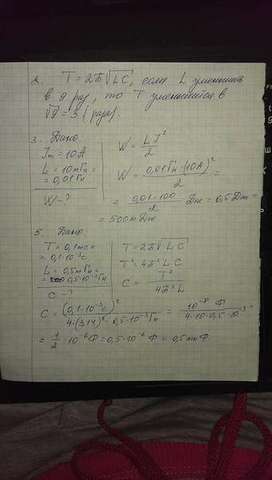 2. T = 2π√LC, если L уменьшить
в 9 раз, то T уменьшится в
√9 = 3 (раза).
3. Дано:
Jm = 10А
L = 10мГн =
= 0,01Гн
W - ?
W = LJ²/2
W = 0,01Гн·(10А)²/2 =
= 0,01·100/2 Дж = 0,5 Дж =
= 500мДж
5. Дано:
T = 0,1мс =
= 0,1·10⁻³с
L = 0,5мГн =
= 0,5·10⁻³Гн
C - ?
T = 2π√LC
T² = 4π²LC
C = T²/4π²L
C = (0,1·10⁻³с)²/4·(3,14)²·0,5·10⁻³Гн = 10⁻⁸ Ф/4·10·0,5·10⁻³ =
= 1/2 · 10⁻⁶ Ф = 0,5·10⁻⁶ Ф = 0,5 мкФ